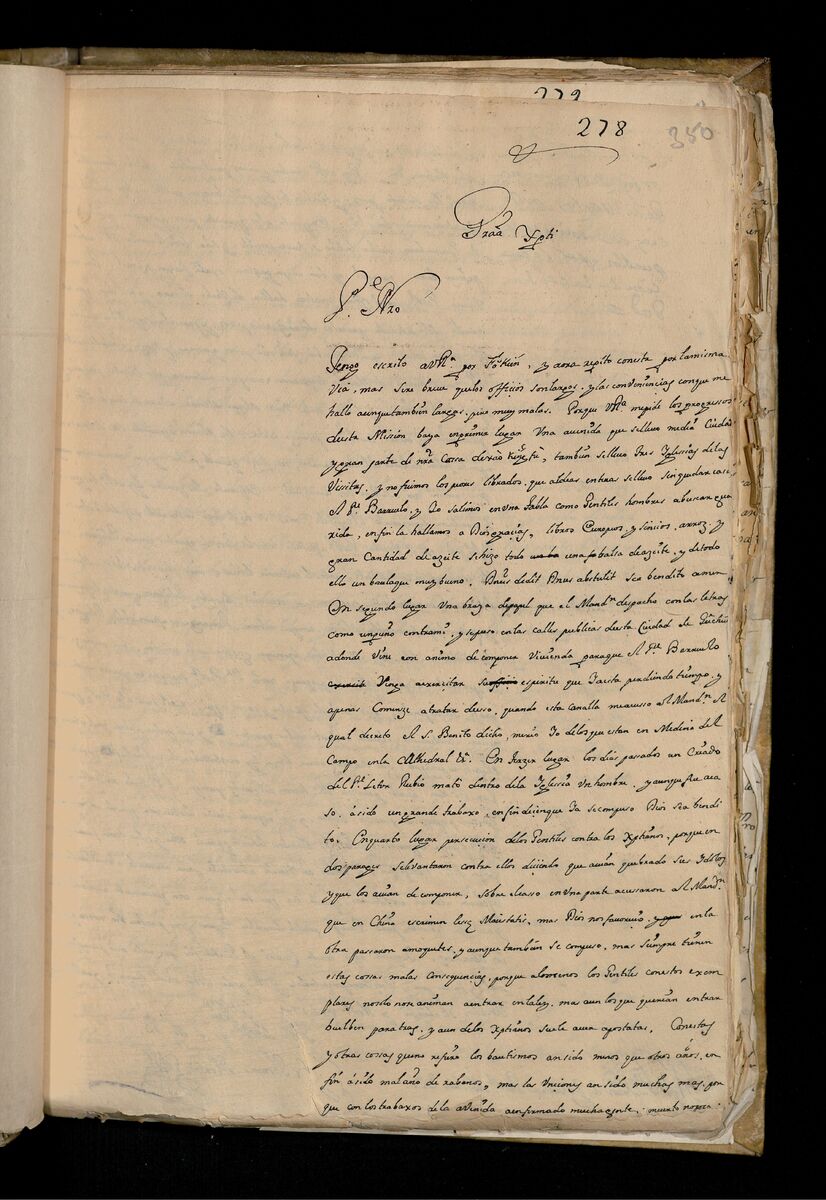 279
278
350
Graā Xpti
P.e Nro
Tengo escrito a VRa por Fo Kien, y aora repito con esta por la misma
via, mas sere breve que los officios son largos, y las conveniencias con que me
hallo aunque tambien largas, pero muy malas. Porque VRa me pide los progressos
de esta Mission baya en primer lugar Una avenida que se llevo media Ciudad
y gran parte de nra Cassa de, tambien se llevo tres Iglessias de las
Vissitas, y no fuimos los peores librados, que aldeas enteras se llevo sin quedar casa
el P.e Barruelo, y Yo salimos en Una Tabla como Gentiles hombres a buscar gua
rida, en fin la hallamos a Dios gracias, libros Europeos, y sinicos, arroz, y
gran Cantidad de azeite se hizo todo una balsa de azeite, y de todo
ello un baulaque muy bueno. Dnus dedit Dnus abstulit sea bendito amen
En segundo lugar Una braza de papel que el Mandn despacho con las letras
como un puño contra mi, y se puso en las calles publicas de esta Ciudad de
adonde Vine con animo de componer Vivienda para que el P.e Berruelo
Venga a exercitar su espiritu que Ya esta perdiendo tiempo, y
apenas Comenze a tratar de esso, quando esta canalla me acusso al Mandn el
qual decreto el S. Benito dicho, mereo Yo de los que estan en Medina del
Campo en la Cathedral &a. En Terzer lugar los dias passados un Criado
del P.e Letor Rubio mató dentro de la Iglessia Un hombre, y aunque fue aca
so, á sido un grande trabaxo, en fin dizen que Ya se compuso Dios sea bendi
to. En quarto lugar persecucion de los Gentiles contra los Xptianos, porque en
dos parages se levantaron contra ellos diciendo que avian quebrado sus Idolos
y que los avian de componer, sobre el casso en Una parte acussaron al Mandn
que en China es crimen lesæ Maiestatis, mas Dios nos favorecio en la
otra passaron a moquetes, y aunque tambien se compuso, mas siempre tienen
estas cossas malas Consequencias, porque a lo menos los Gentiles con estos exem
plares no solo no se animan a entrar en la ley, mas aun los que querian entrar
buelben para tras, y aun de los Xptianos suele aver apostatas. Con estas
y otras cossas que no refiero los bautismos an sido menos que otros años, en
fin á sido mal año de rabanos, mas las Unciones an sido muchas mas, por
que con los trabaxos de la avenida a enfirmado mucha gente, muerto no poca